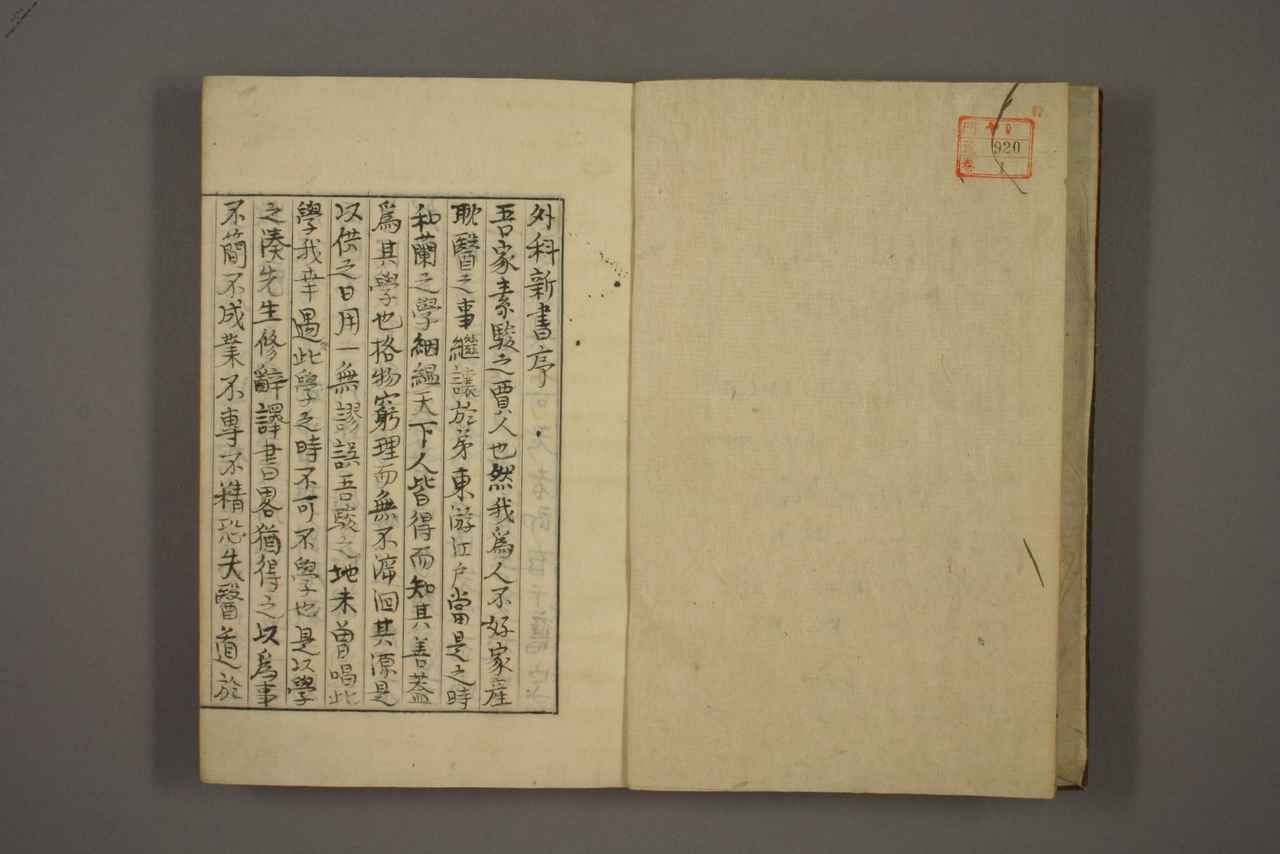 920
外科新書序
吾家素駿之賈人也然我爲人不好家産
耽醫之事繼讓於弟東游江戸當是之時
和蘭之學絪緼天下人皆得而知其善蓋
爲其學也格物窮理而無不泝洄其源是
以供之日用一無謬誤吾駿之地未曾唱此
學我幸遇此學之時不可不學也是以學
之湊先生修辭譯書畧猶得之以爲事
不簡不成業不專不精恐失醫道於